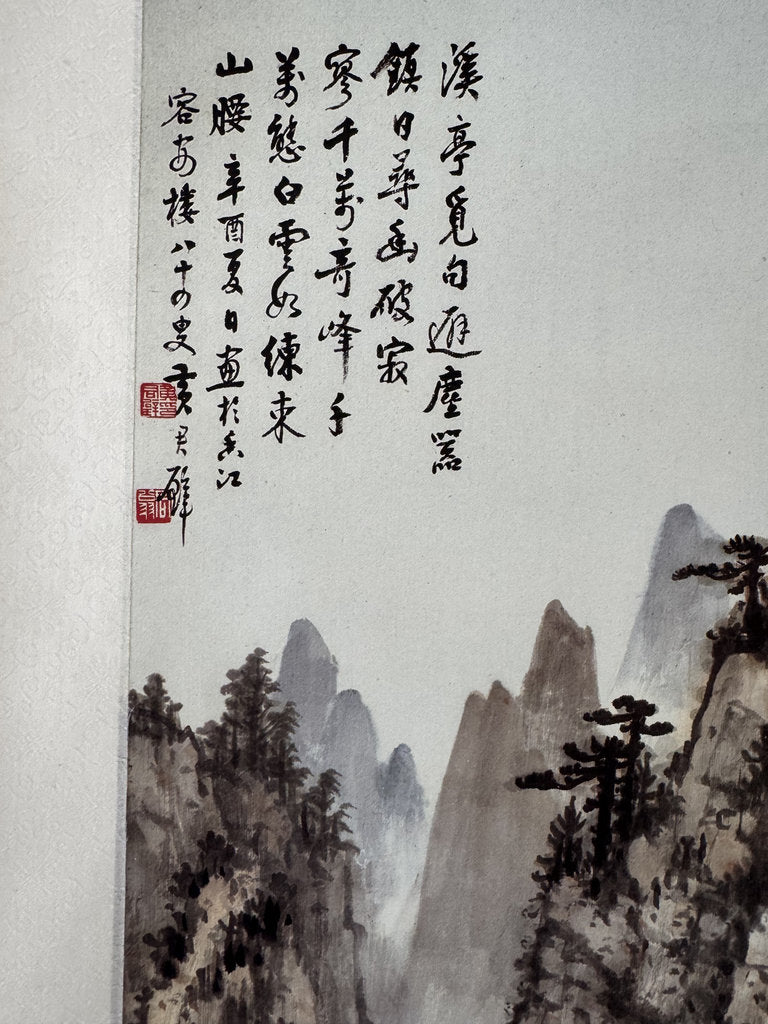 溪亭覓句避塵囂
鎮日尋幽破寂
寥千萬奇峰千
萬態白雲如練束
山腰 辛酉夏日畫於香江
容安樓八十四叟黃君璧
黃君璧印
君翁